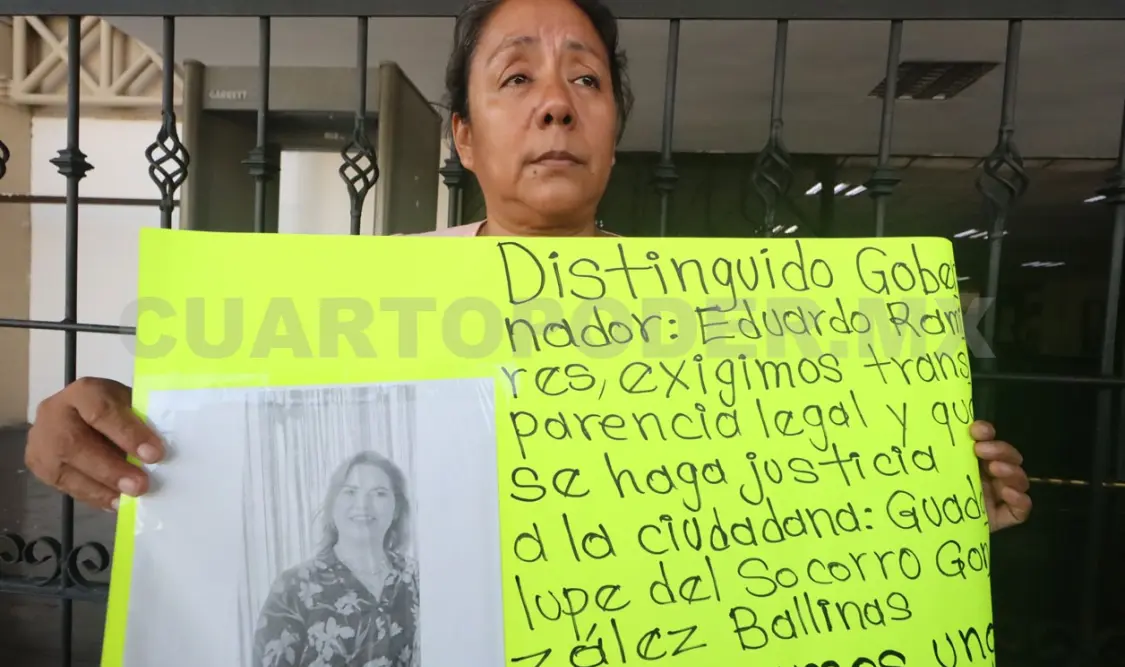 GARRETT
CUARTOPODER.MX
Distinguido Gober
nador: Eduardo Rami
res, exigimos trans
parencia legal y que
se haga justicia
a la ciudadana: Guada
lupe del Socorro Gon
zález Ballinas
una